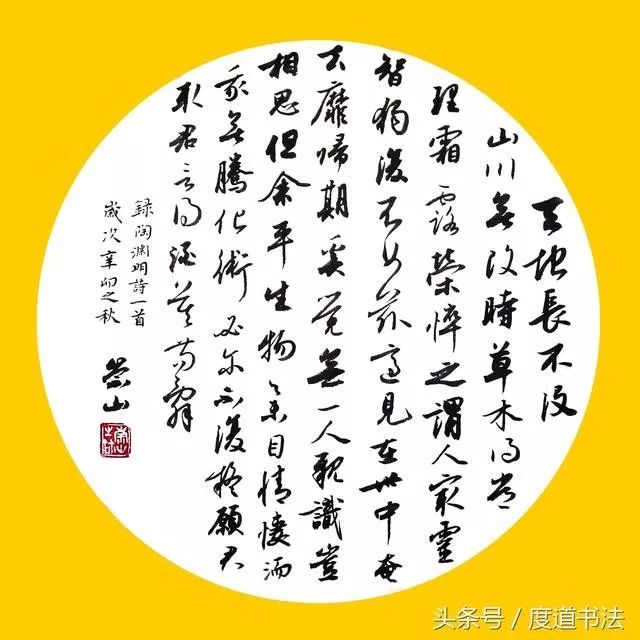 天地長不没
山川無改時草木得常
理霜露榮悴之謂人最靈
智獨復不如茲適見在世中奄
去靡歸期奚覺無一人親識豈
相思但余平生物舉目情悽洏
我無騰化術必尔不復疑願君
取君言得酒莫苟辭
録陶淵明詩一首
歲次辛卯之秋
崇山
头条号 / 度道书法